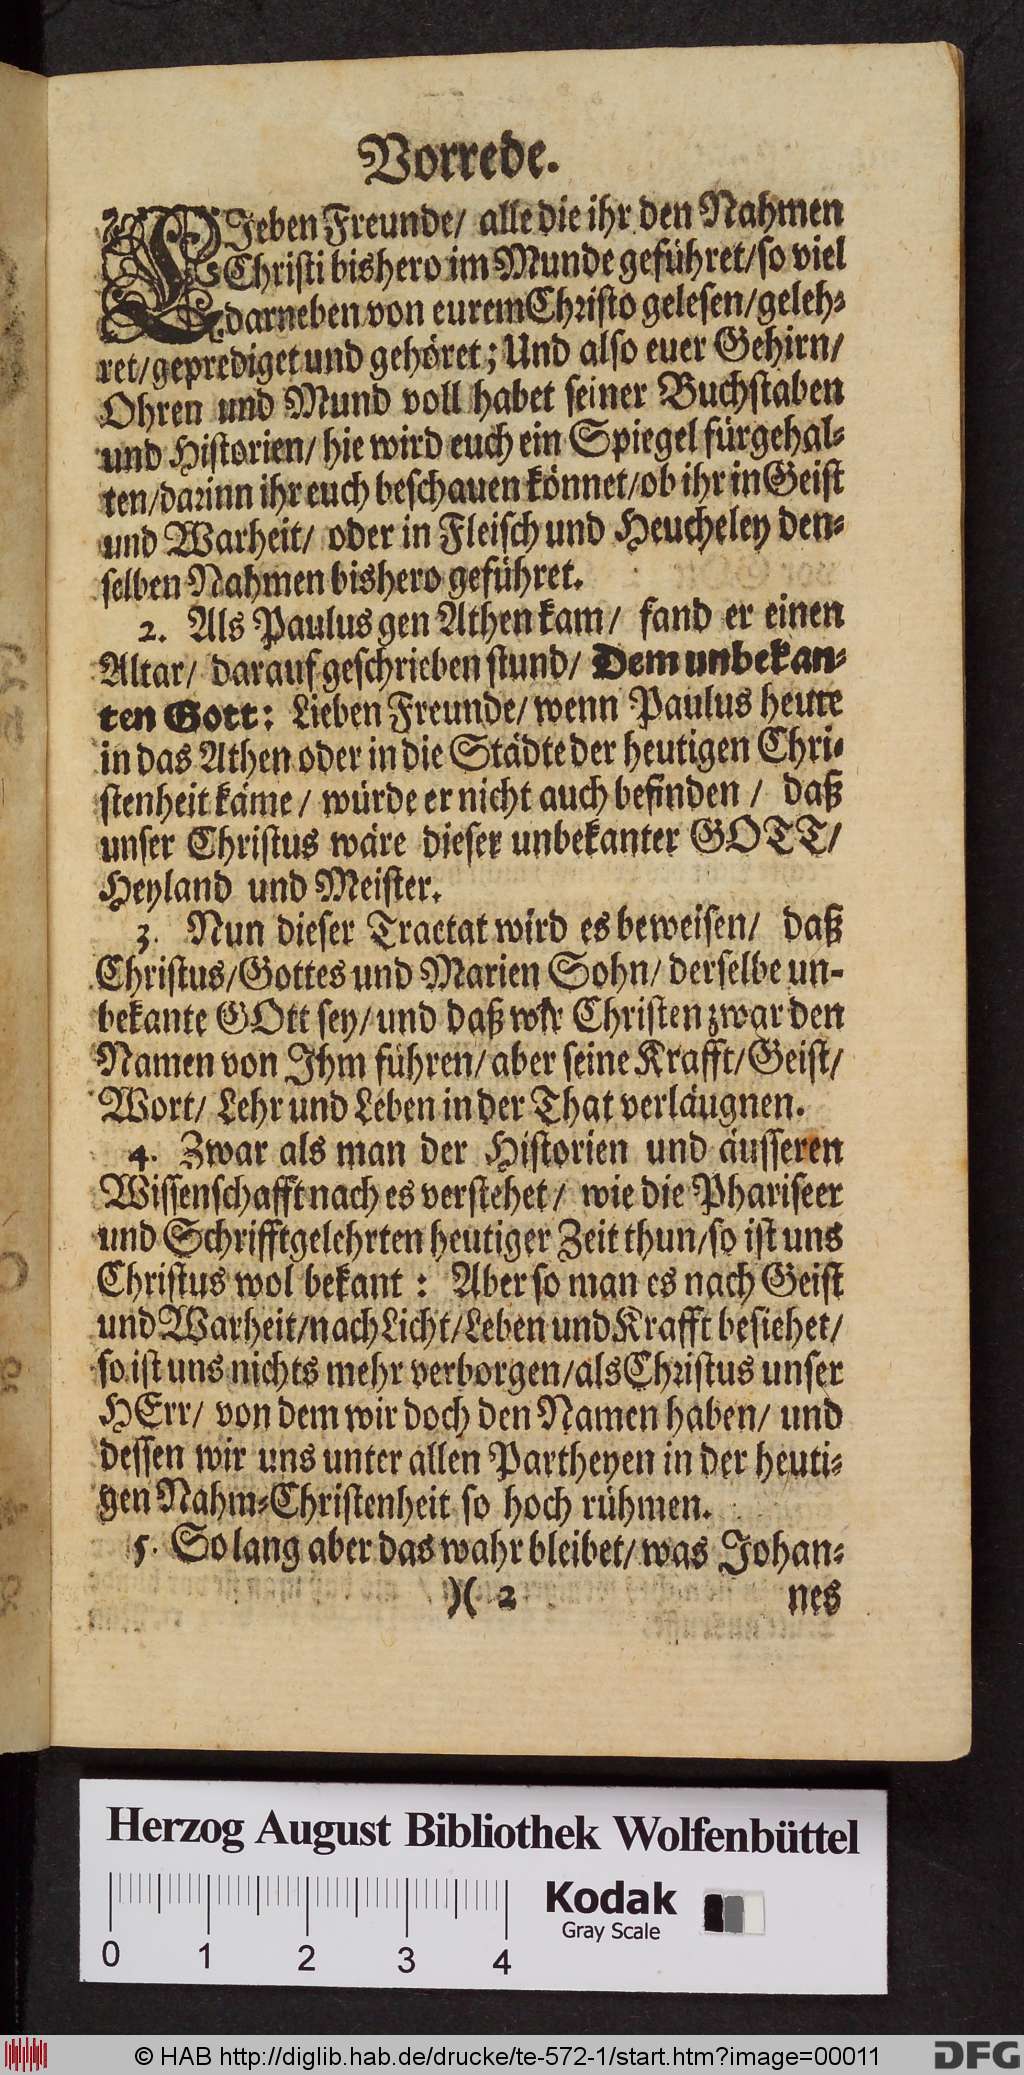 Vorrede.
LIeben Freunde/ alle die ihr den Nahmen
Christi bishero im Munde geführet/so viel
darneben von eurem Christo gelesen/geleh-
ret/geprediget und gehöret; Und also euer Gehirn/
Ohren und Mund voll habet seiner Buchstaben
und Historien/ hie wird euch ein Spiegel fürgehal-
ten/darinn ihr euch beschauen könnet/ob ihr in Geist
und Warheit/ oder in Fleisch und Heucheley den-
selben Nahmen bishero geführet.
2. Als Paulus gen Athen kam/ fand er einen
Altar/ darauf geschrieben stund/ Dem unbekan-
ten Gott: Lieben Freunde/ wenn Paulus heute
in das Athen oder in die Städte der heutigen Chri-
stenheit käme/ würde er nicht auch befinden/ daß
unser Christus wäre dieser unbekanter GOTT/
Heyland und Meister.
3. Nun dieser Tractat wird es beweisen/ daß
Christus/Gottes und Marien Sohn/ derselbe un-
bekante GOtt sey/ und daß wir Christen zwar den
Namen von Ihm führen/ aber seine Krafft/ Geist/
Wort/ Lehr und Leben in der That verläugnen.
4. Zwar als man der Historien und äusseren
Wissenschafft nach es verstehet/ wie die Phariseer
und Schrifftgelehrten heutiger Zeit thun/so ist uns
Christus wol bekant: Aber so man es nach Geist
und Warheit/nach Licht/Leben und Krafft besiehet/
so ist uns nichts mehr verborgen/als Christus unser
HErr/ von dem wir doch den Namen haben/ und
dessen wir uns unter allen Partheyen in der heuti-
gen Nahm-Christenheit so hoch rühmen.
5. So lang aber das wahr bleibet/ was Johan-
)( 2 nes
Herzog August Bibliothek Wolfenbüttel
Kodak
Gray Scale
0 1 2 3 4
© HAB http://diglib.hab.de/drucke/te-572-1/start.htm?image=00011
DFG